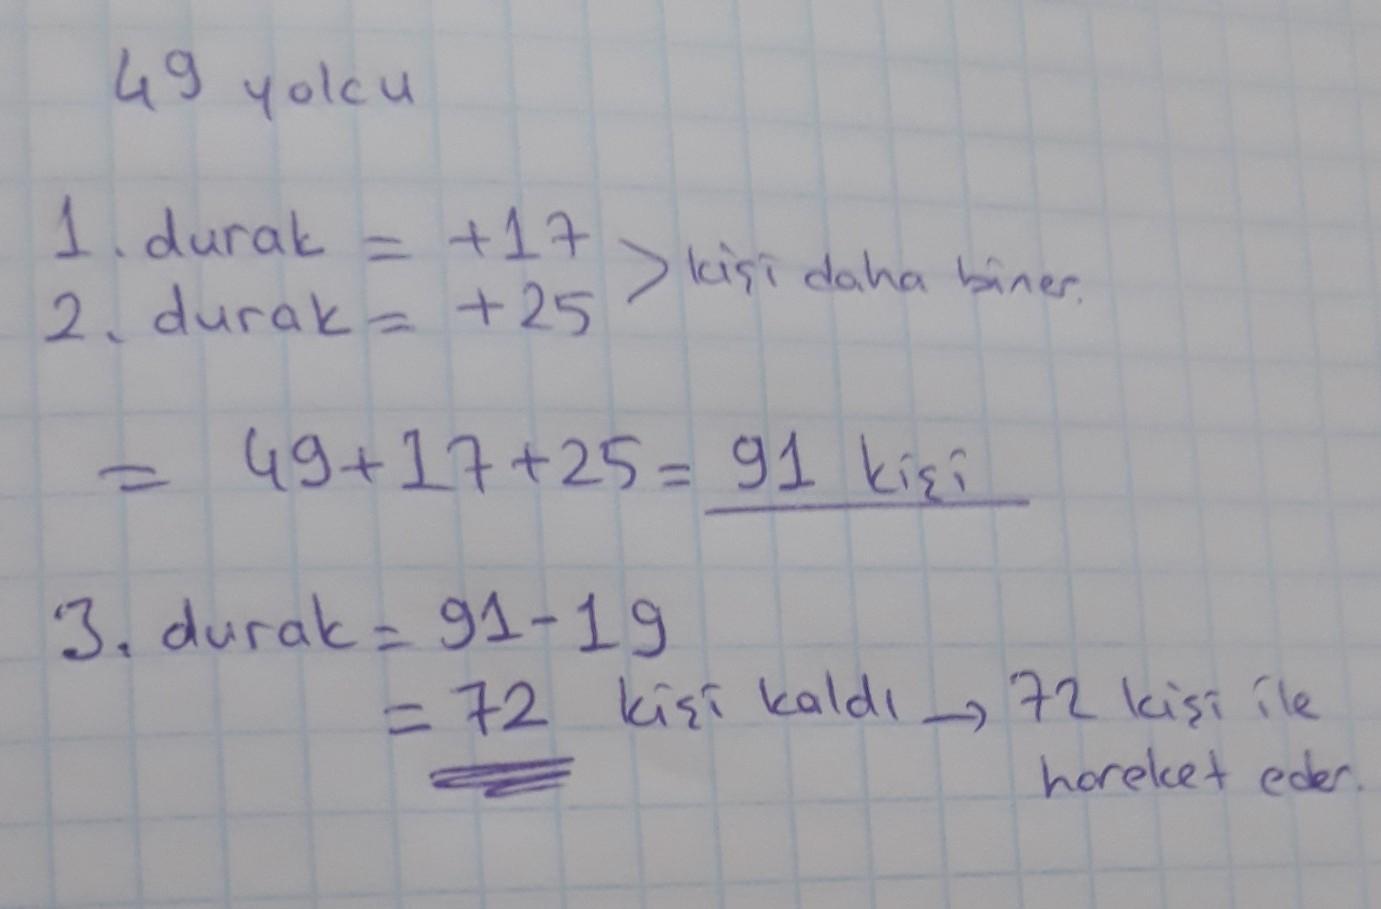 49 yolcu
1. durak = +17
2. durak = +25
> kişi daha biner.
= 49+17+25= 91 kişi
3. durak = 91-19
= 72 kişi kaldı → 72 kişi ile
hareket eder.